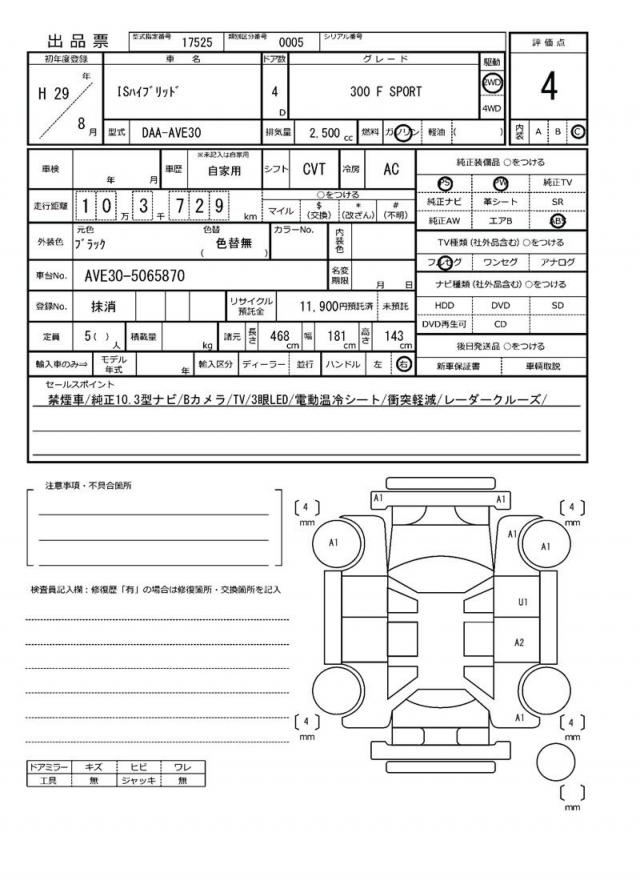 出品票 型式指定番号 17525 類別区分番号 0005 シリアル番号
初年度登録 車名 ドア数 グレード 駆動 評価点
H 29 年 8 月 ISハイブリッド 4 D 300 F SPORT 2WD 4WD 4
型式 DAA-AVE30 排気量 2,500 cc 燃料 ガソリン 軽油 ( ) 内装 A B C
車検 年 月 車歴 ※未記入は自家用 自家用 シフト CVT 冷房 AC 純正装備品 ○をつける
PS PW 純正TV
走行距離 10万3千729 km ○をつける 純正ナビ 革シート SR
マイル $(交換) *(改ざん) #(不明) 純正AW エアB ABS
外装色 元色 ブラック 色替 ( 色替無 ) カラーNo. 内装色 TV種類(社外品含む) ○をつける
フルセグ ワンセグ アナログ
車台No. AVE30-5065870 名変期限 月 日 ナビ種類(社外品含む) ○をつける
登録No. 抹消 リサイクル預託金 11,900円預託済 未預託 HDD DVD SD
DVD再生可 CD
定員 5( )人 積載量 kg 諸元 長さ 468 cm 幅 181 cm 高さ 143 cm 後日発送品 ○をつける
輸入車のみ⇒ モデル年式 年 輸入区分 ディーラー 並行 ハンドル 左 右 新車保証書 車輌取説
セールスポイント
禁煙車/純正10.3型ナビ/Bカメラ/TV/3眼LED/電動温冷シート/衝突軽減/レーダークルーズ/
注意事項・不具合箇所
検査員記入欄：修復歴「有」の場合は修復箇所・交換箇所を記入
A1 A1
[ 4 ] mm [ 4 ] mm
A1 A1 A1
U1
A2
A1
[ 4 ] mm [ 4 ] mm
[ ] mm
ドアミラー キズ ヒビ ワレ
工具 無 ジャッキ 無